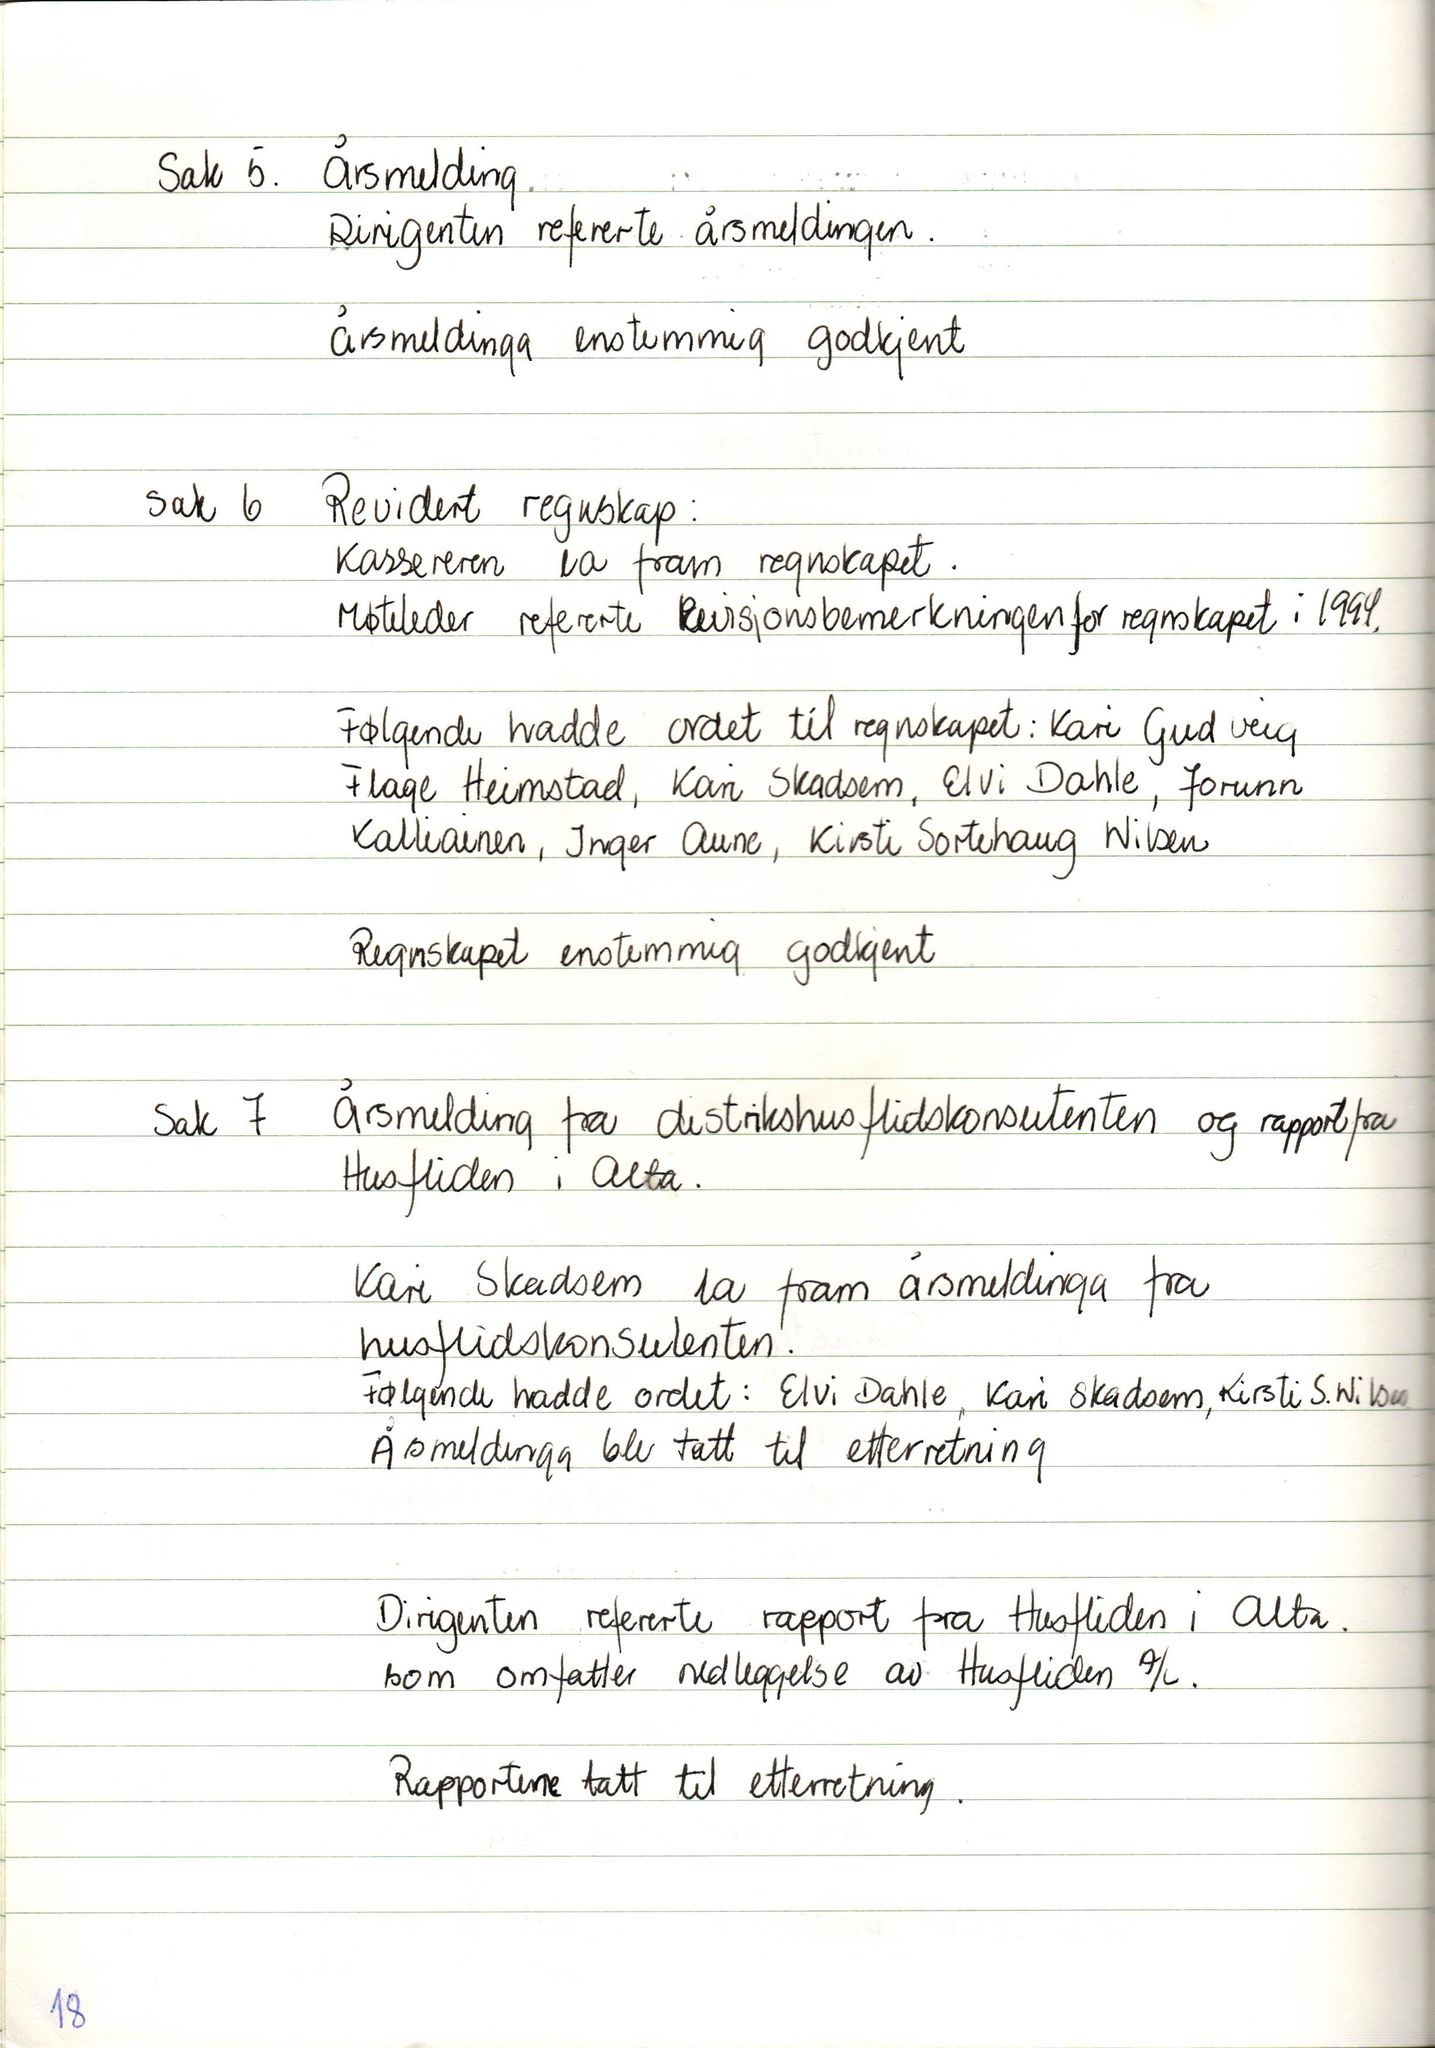 Sak 5. Årsmelding.
Dirigenten refererte årsmeldingen.
Årsmeldinga enstemmig godkjent
Sak 6 Revidert regnskap:
Kassereren la fram regnskapet.
Møteleder refererte Revisjonsbemerkningen for regnskapet i 1994.
Følgende hadde ordet til regnskapet: Kari Gudveig
Flage Heimstad, Kari Skadsem, Elvi Dahle, Jorunn
Kalliainen, Inger Aune, Kirsti Sortehaug Nilsen
Regnskapet enstemmig godkjent
Sak 7 Årsmelding fra distrikshusflidskonsulenten og rapport fra
Husfliden i Alta.
Kari Skadsem la fram årsmeldinga fra
husflidskonsulenten.
Følgende hadde ordet: Elvi Dahle, Kari Skadsem, Kirsti S. Nilsen
Årsmeldinga ble tatt til etterretning
Dirigenten refererte rapport fra Husfliden i Alta.
som omfatter nedleggelse av Husfliden A/L.
Rapportene tatt til etterretning.
18